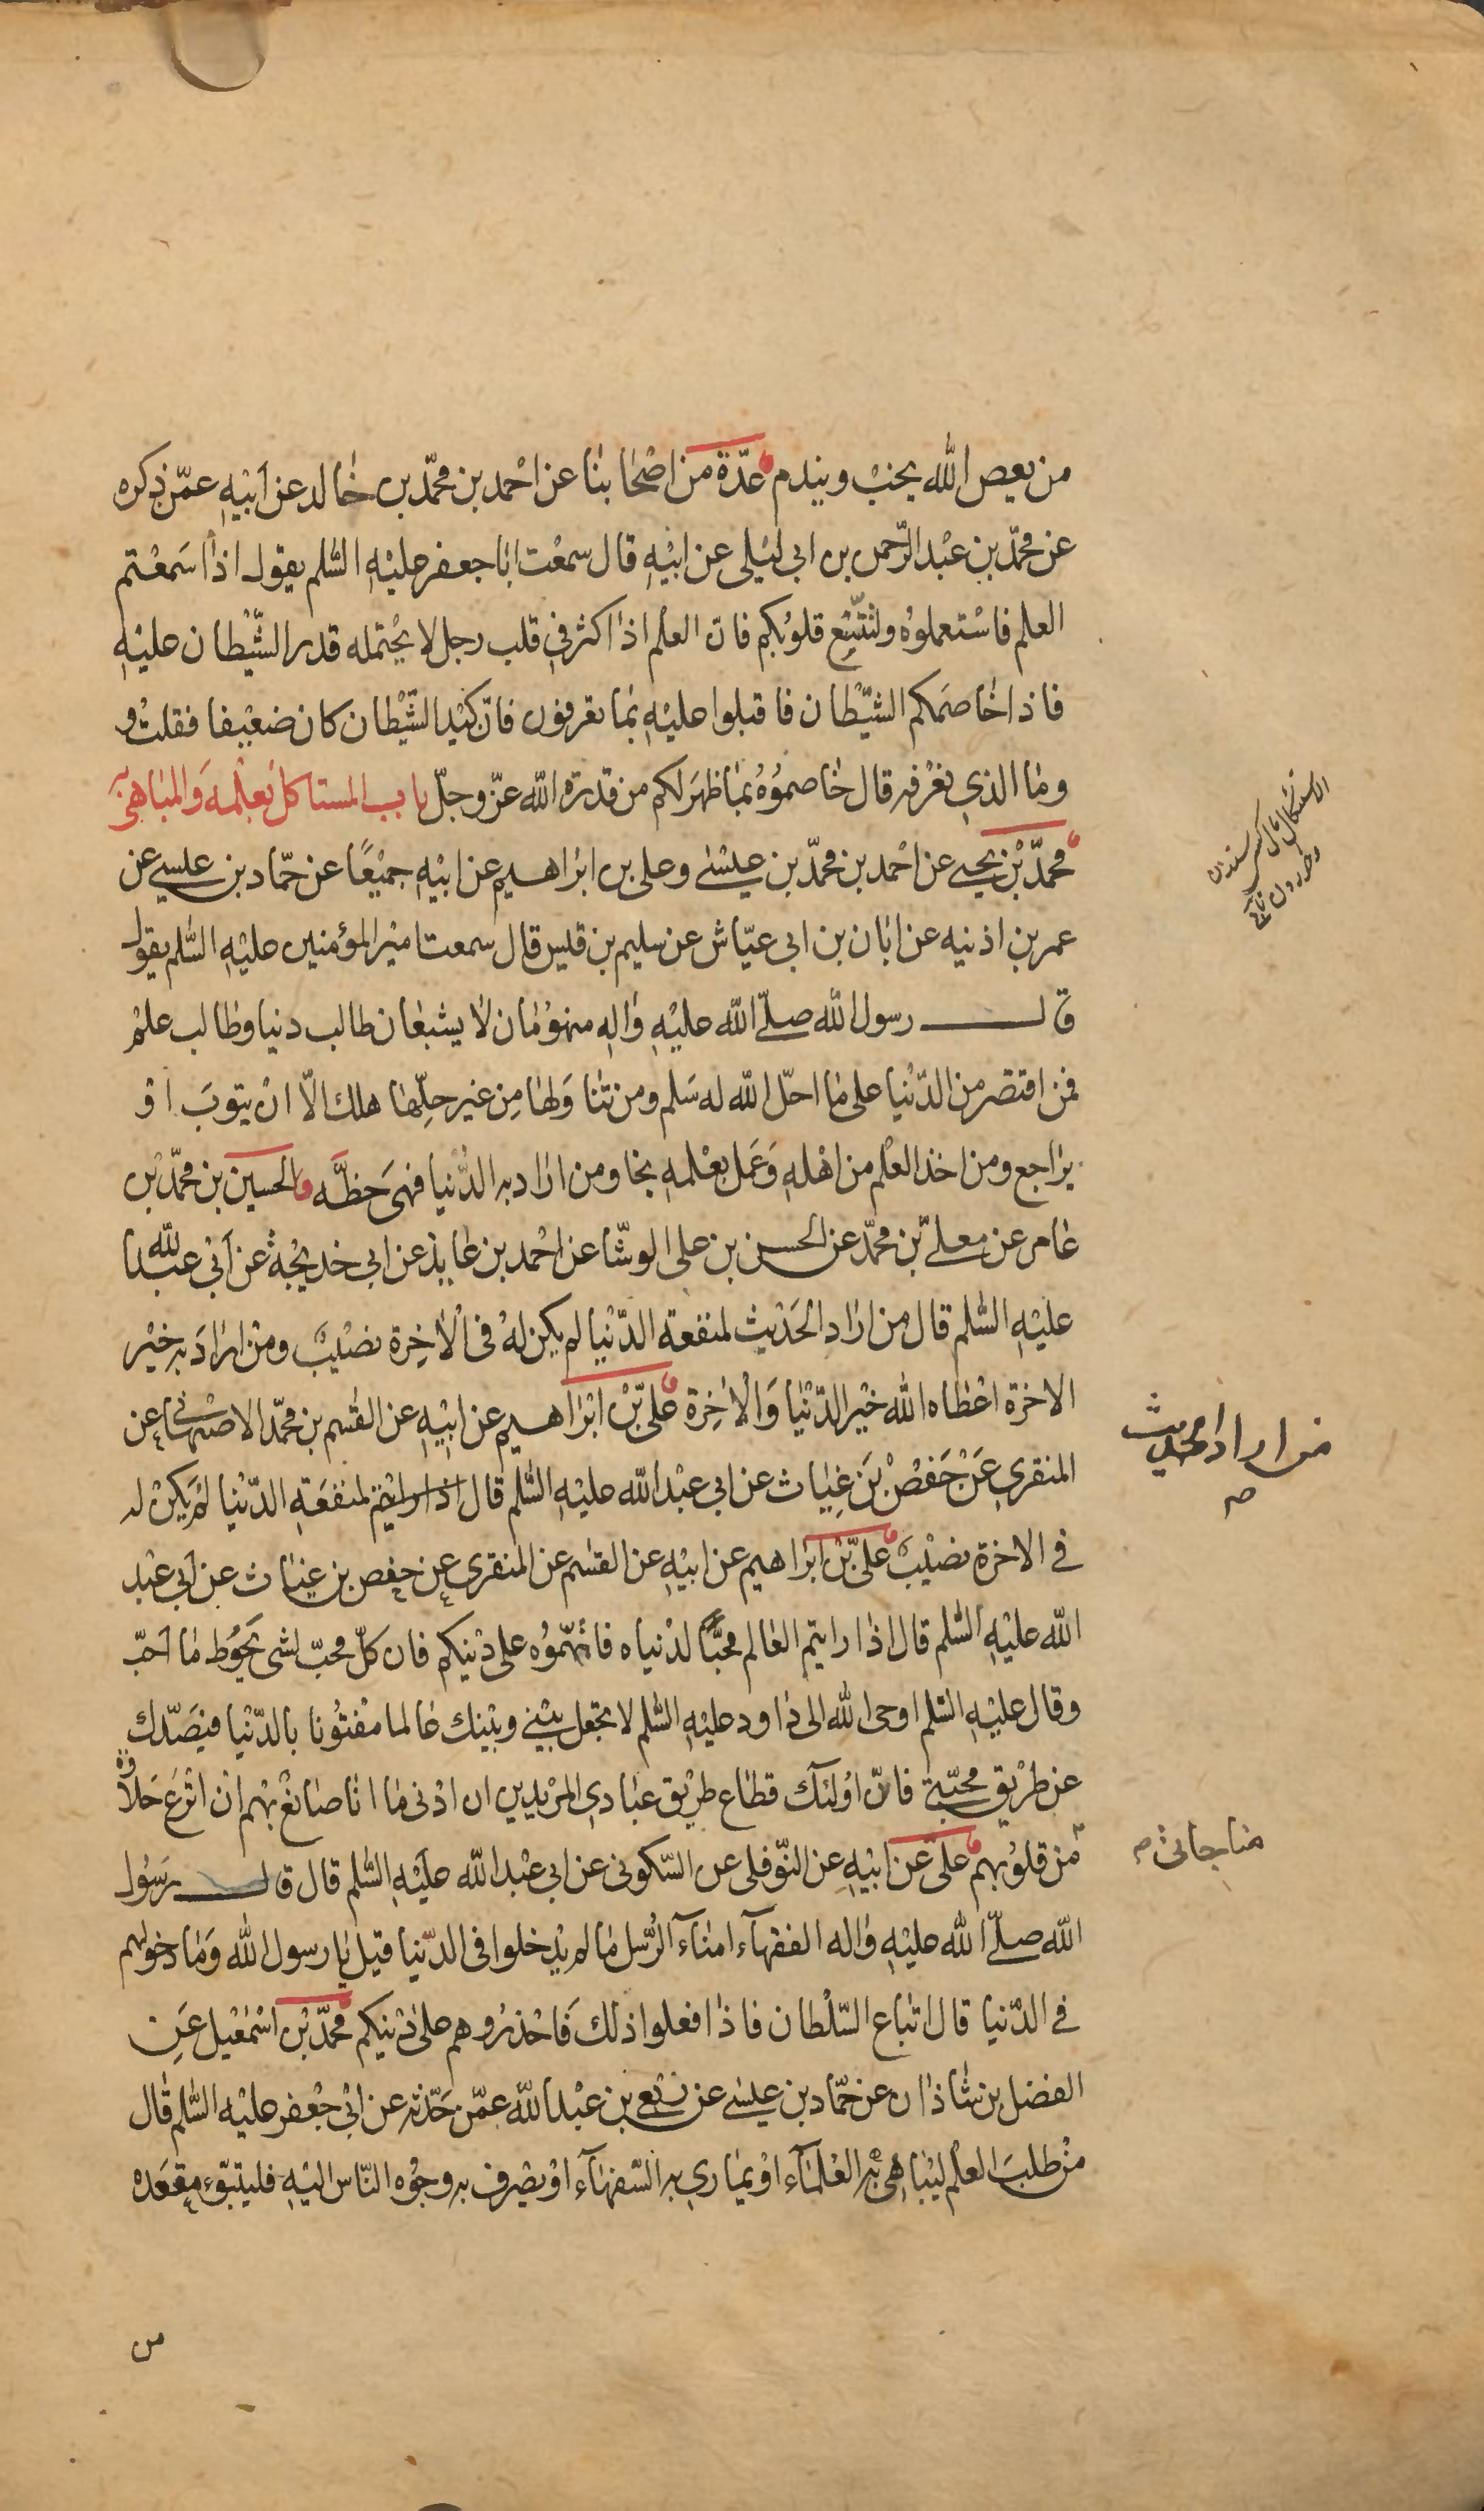 من يعص الله يخب ويندم عدّة من اصحابنا عن احمد بن محمّد بن خالد عن ابيه عمّن ذكره
عن محمّد بن عبد الرّحمن بن ابى ليلى عن ابيه قال سمعت ابا جعفر عليه السّلم يقول اذا سمعتم
العلم فاستعملوه ولتتّسع قلوبكم فان العلم اذا كثر في قلب رجل لا يحتمله قدر الشّيطان عليه
فاذا خاصمكم الشّيطان فاقبلوا عليه بما تعرفون فانّ كيد الشّيطان كان ضعيفا فقلت و
وما الذي نعرفه قال خاصموه بما ظهر لكم من قدرة الله عزّ وجلّ باب المستاكل بعلمه والمباهى به
محمّد بن يحيى عن احمد بن محمّد بن عيسى وعلى بن ابراهيم عن ابيه جميعًا عن حمّاد بن عيسى عن
عمر بن اذنيه عن ابان بن ابى عيّاش عن سليم بن قيس قال سمعت امير المؤمنين عليه السّلم يقول
قال رسول الله صلّى الله عليه واله منهومان لا يشبعان طالب دنيا وطالب علم
فمن اقتصر من الدّنيا على ما احلّ الله له سلم ومن تناولها من غير حلّها هلك الّا ان يتوب او
يراجع ومن اخذ العلم من اهله وعمل بعلمه نجا ومن اراد به الدّنيا فهى حظّه الحسين بن محمّد بن
عامر عن معلى بن محمّد عن الحسن بن على الوشّا عن احمد بن عايذ عن ابى خديجة عن ابى عبد الله
عليه السّلم قال من اراد الحديث لمنفعة الدّنيا لم يكن له فى الاخرة نصيب ومن اراد به خير
الاخرة اعطاه الله خير الدّنيا والاخرة علىّ بن ابراهيم عن ابيه عن القسم بن محمّد الاصبهانى عن
المنقري عن حفص بن غياث عن ابى عبد الله عليه السّلم قال اذا رايتم لمنفعة الدّنيا لم يكن له
في الاخرة نصيب علىّ بن ابراهيم عن ابيه عن القسم عن المنقري عن حفص بن غياث عن ابى عبد
الله عليه السّلم قال اذا رايتم العالم محبًّا لدنياه فاتّهموه على دينكم فان كلّ محبّ لشى يحوط ما احبّ
وقال عليه السّلم اوحى الله الى داود عليه السّلم لا تجعل بينى وبينك عالما مفتونا بالدّنيا فيصدّك
عن طريق محبّتى فانّ اولئك قطاع طريق عبادي المريدين ان ادنى ما انا صانع بهم ان انزع حلاوة
من قلوبهم علىّ عن ابيه عن النّوفلى عن السّكونى عن ابى عبد الله عليه السّلم قال قال رسول
الله صلّى الله عليه واله الفقهآء امنآء الرّسل ما لم يدخلوا فى الدّنيا قيل يا رسول الله وما دخولهم
في الدّنيا قال اتباع السّلطان فاذا فعلوا ذلك فاحذروهم على دينكم محمّد بن اسمعيل عن
الفضل بن شاذان عن حمّاد بن عيسى عن ربعى بن عبد الله عمّن حدّثه عن ابى جعفر عليه السّلم قال
من طلب العلم ليباهى به العلمآء او يمارى به السّفهآء او يصرف به وجوه النّاس اليه فليتبوّء مقعده
من
من اراد الحديث
صح
مناجاتى